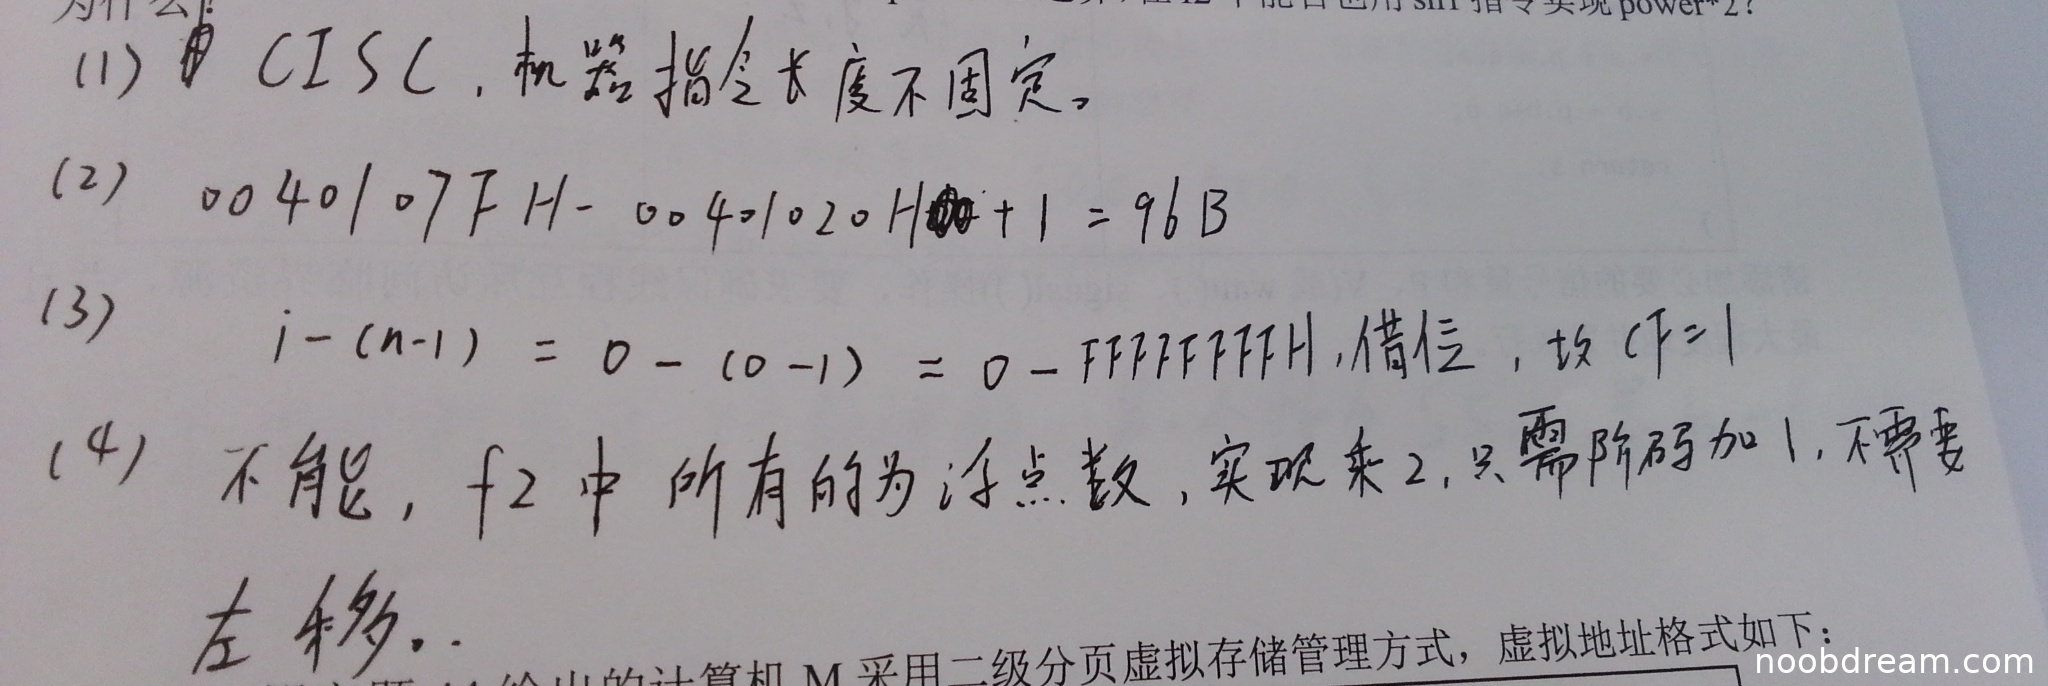 为什么?
能否也用shl指令实现power*2?
(1) CISC,机器指令长度不固定。
(2) 0040107FH- 00401020H+1=96B
(3) i-(n-1) = 0-(0-1) = 0-FFFFFFFFH,借位,故CF=1
(4) 不能,f2中所有的为浮点数,实现乘2,只需阶码加1,不需要
左移。
给出的计算机 M 采用二级分页虚拟存储管理方式,虚拟地址格式如下:
noobdream.com